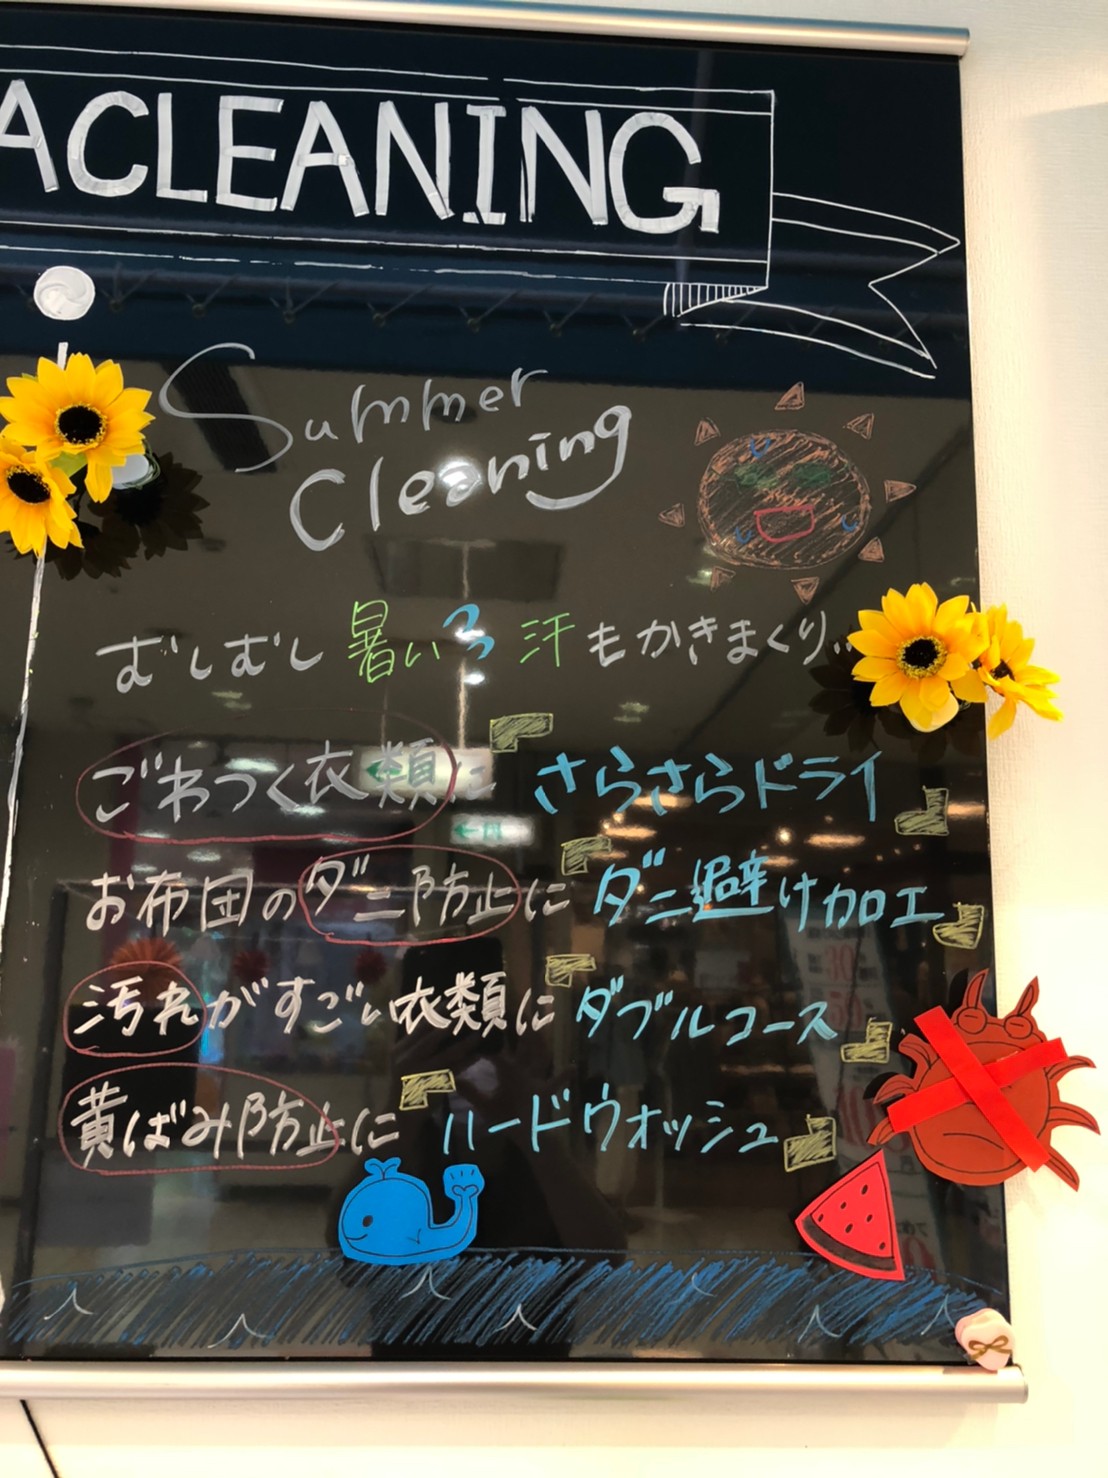 ACLEANING
Summer
Cleaning
むしむし暑いろ汗もかきまくり...
ごわつく衣類に「さらさらドライ」
お布団のダニ防止に「ダニ避け加工」
汚れがすごい衣類に「ダブルコース」
黄ばみ防止に「ハードウォッシュ」